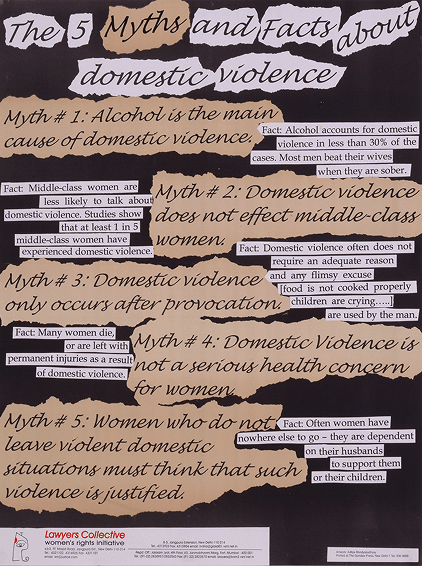 The 5 Myths and Facts about
domestic violence
Myth # 1: Alcohol is the main
cause of domestic violence.
Fact: Alcohol accounts for domestic
violence in less than 30% of the
cases. Most men beat their wives
when they are sober.
Fact: Middle-class women are
less likely to talk about
domestic violence. Studies show
that at least 1 in 5
middle-class women have
experienced domestic violence.
Myth # 2: Domestic violence
does not effect middle-class
women.
Fact: Domestic violence often does not
require an adequate reason
and any flimsy excuse
[food is not cooked properly
children are crying.....]
are used by the man.
Myth # 3: Domestic violence
only occurs after provocation.
Fact: Many women die,
or are left with
permanent injuries as a result
of domestic violence.
Myth # 4: Domestic Violence is
not a serious health concern
for women.
Myth # 5: Women who do not
leave violent domestic
situations must think that such
violence is justified.
Fact: Often women have
nowhere else to go – they are dependent
on their husbands
to support them
or their children.
Lawyers Collective
women's rights initiative